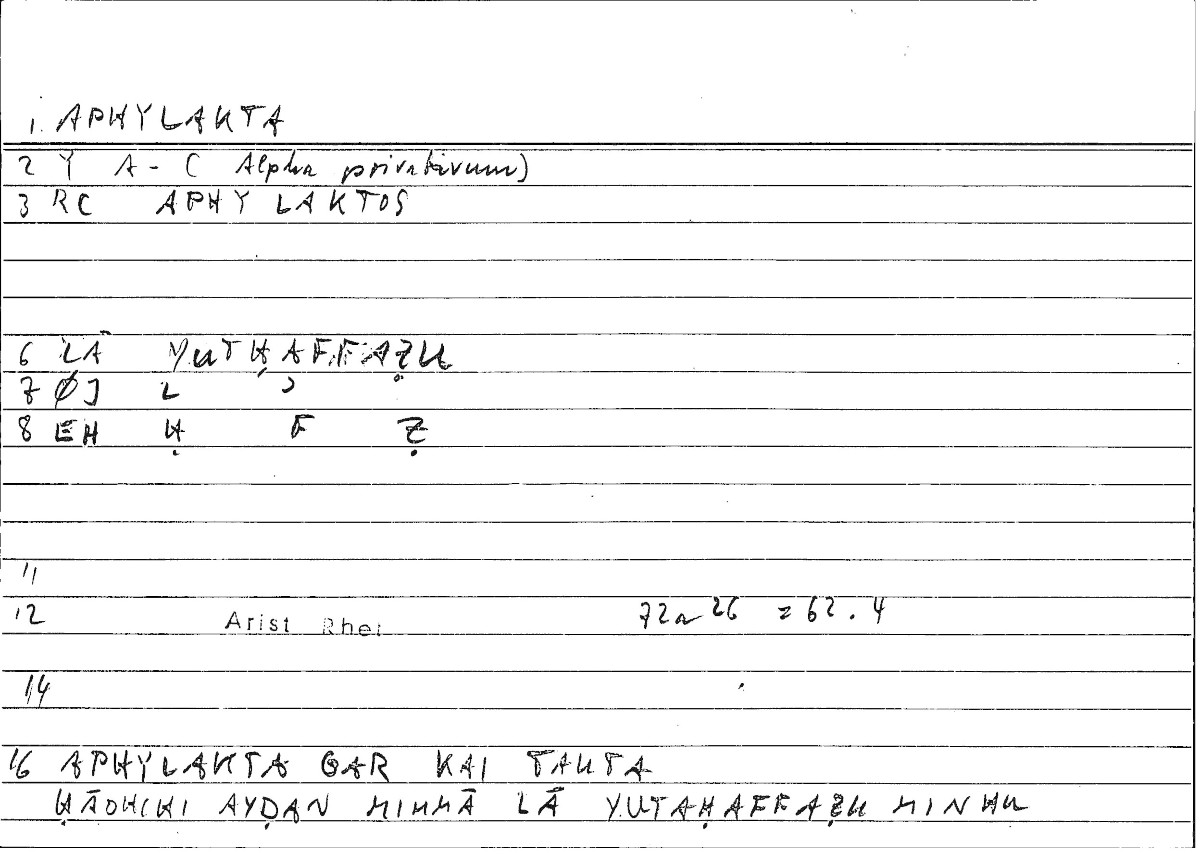 1. APHYLAKTA
2 Y A - ( Alpha privativum)
3 RC APHYLAKTOS
6 LĀ YUTḤAFFAẒU
7 ØJ L J
8 EH Ḥ F Ẓ
11
12 Arist Rhet 72a26 = 62.4
14
16 APHYLAKTA GAR KAI TAUTA
HĀDHIHI AYḌAN MIMMĀ LĀ YUTAḤAFFAẒU MINHU